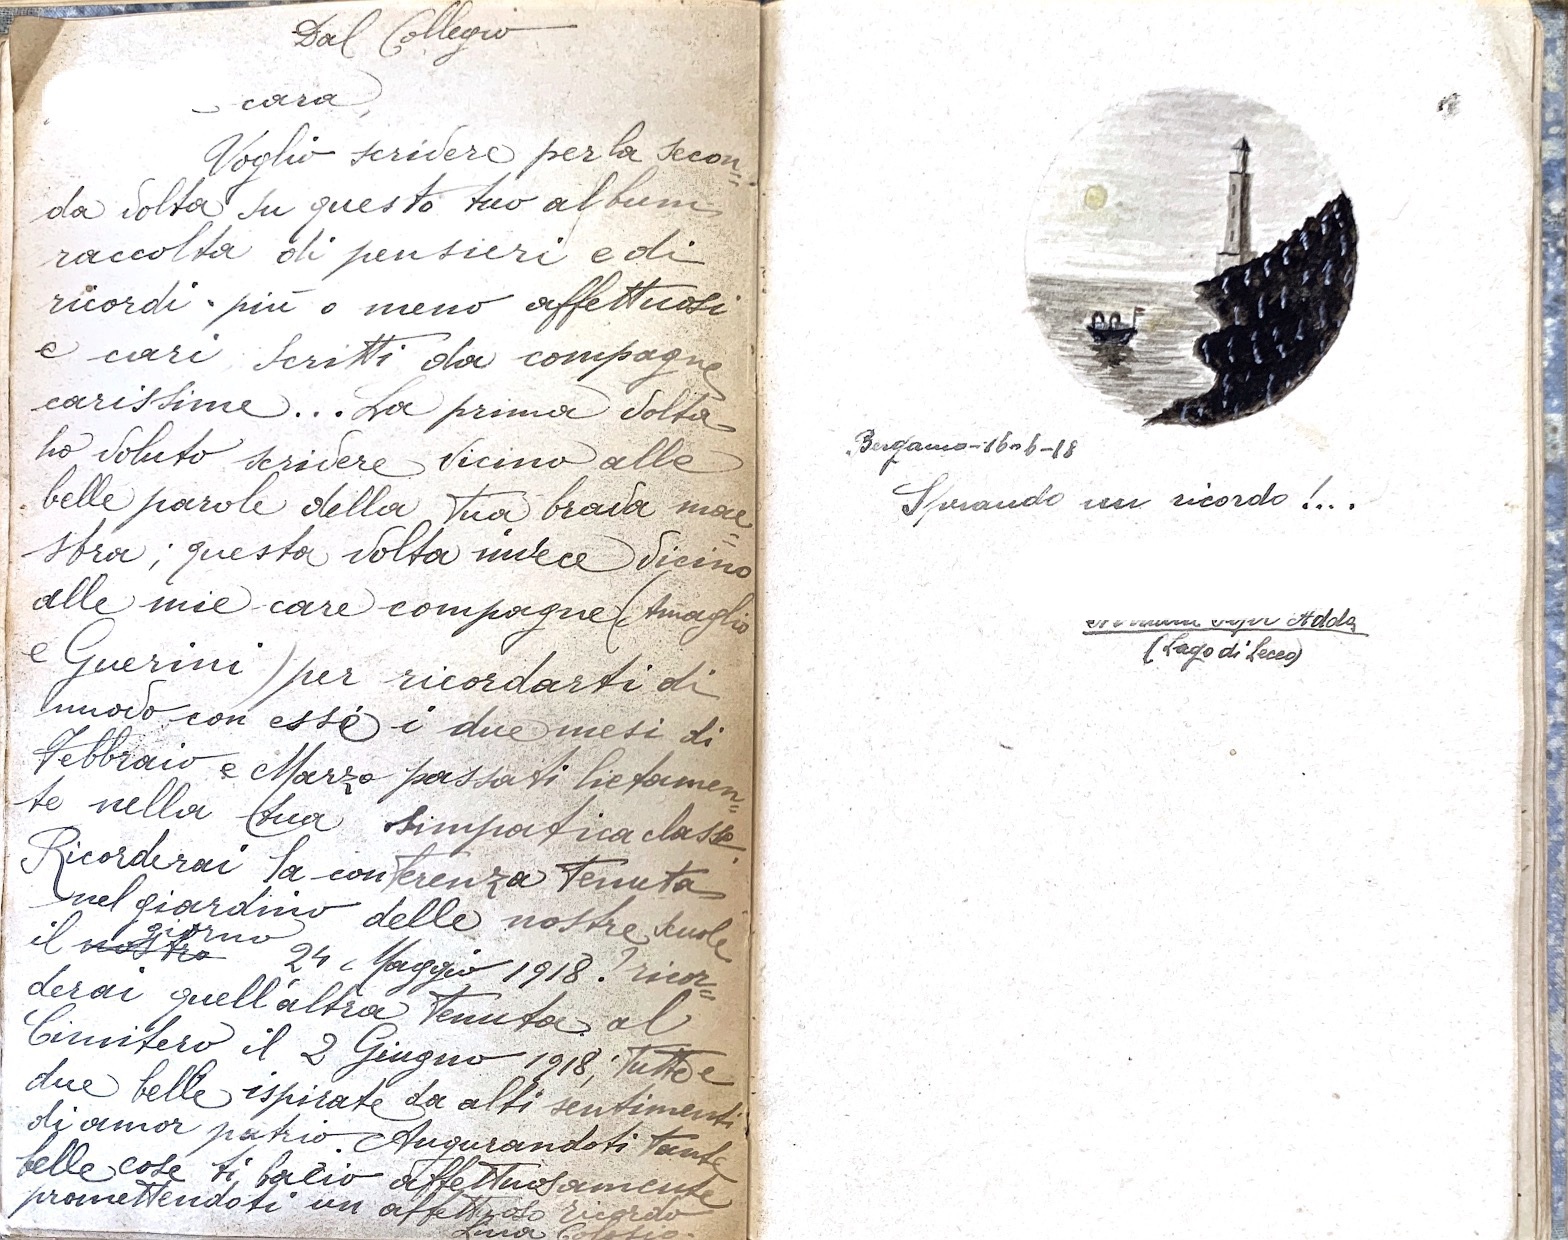 Dal Collegio
cara,
Voglio scrivere per la secon=
da volta su questo tuo album
raccolta di pensieri e di
ricordi più o meno affettuosi
e cari scritti da compagne
carissime... La prima volta
ho voluto scrivere vicino alle
belle parole della tua brava mae
stra; questa volta invece vicino
alle mie care compagne (Amaglio
e Guerini) per ricordarti di
nuovo con esse i due mesi di
Febbraio e Marzo passati lietamen=
te nella tua simpatica classe
Ricorderai la conferenza tenuta
nel giardino delle nostre scuole
il giorno 24 Maggio 1918. ricor=
derai quell'altra tenuta al
Cimitero il 2 Giugno 1918; tutte e
due belle ispirate da alti sentimenti
di amor patrio. Augurandoti tante
belle cose ti bacio affettuosamente
promettendoti un affettuoso ricordo
Bergamo-16-6-18
Sperando un ricordo!...
Adda
(Lago di Lecco)